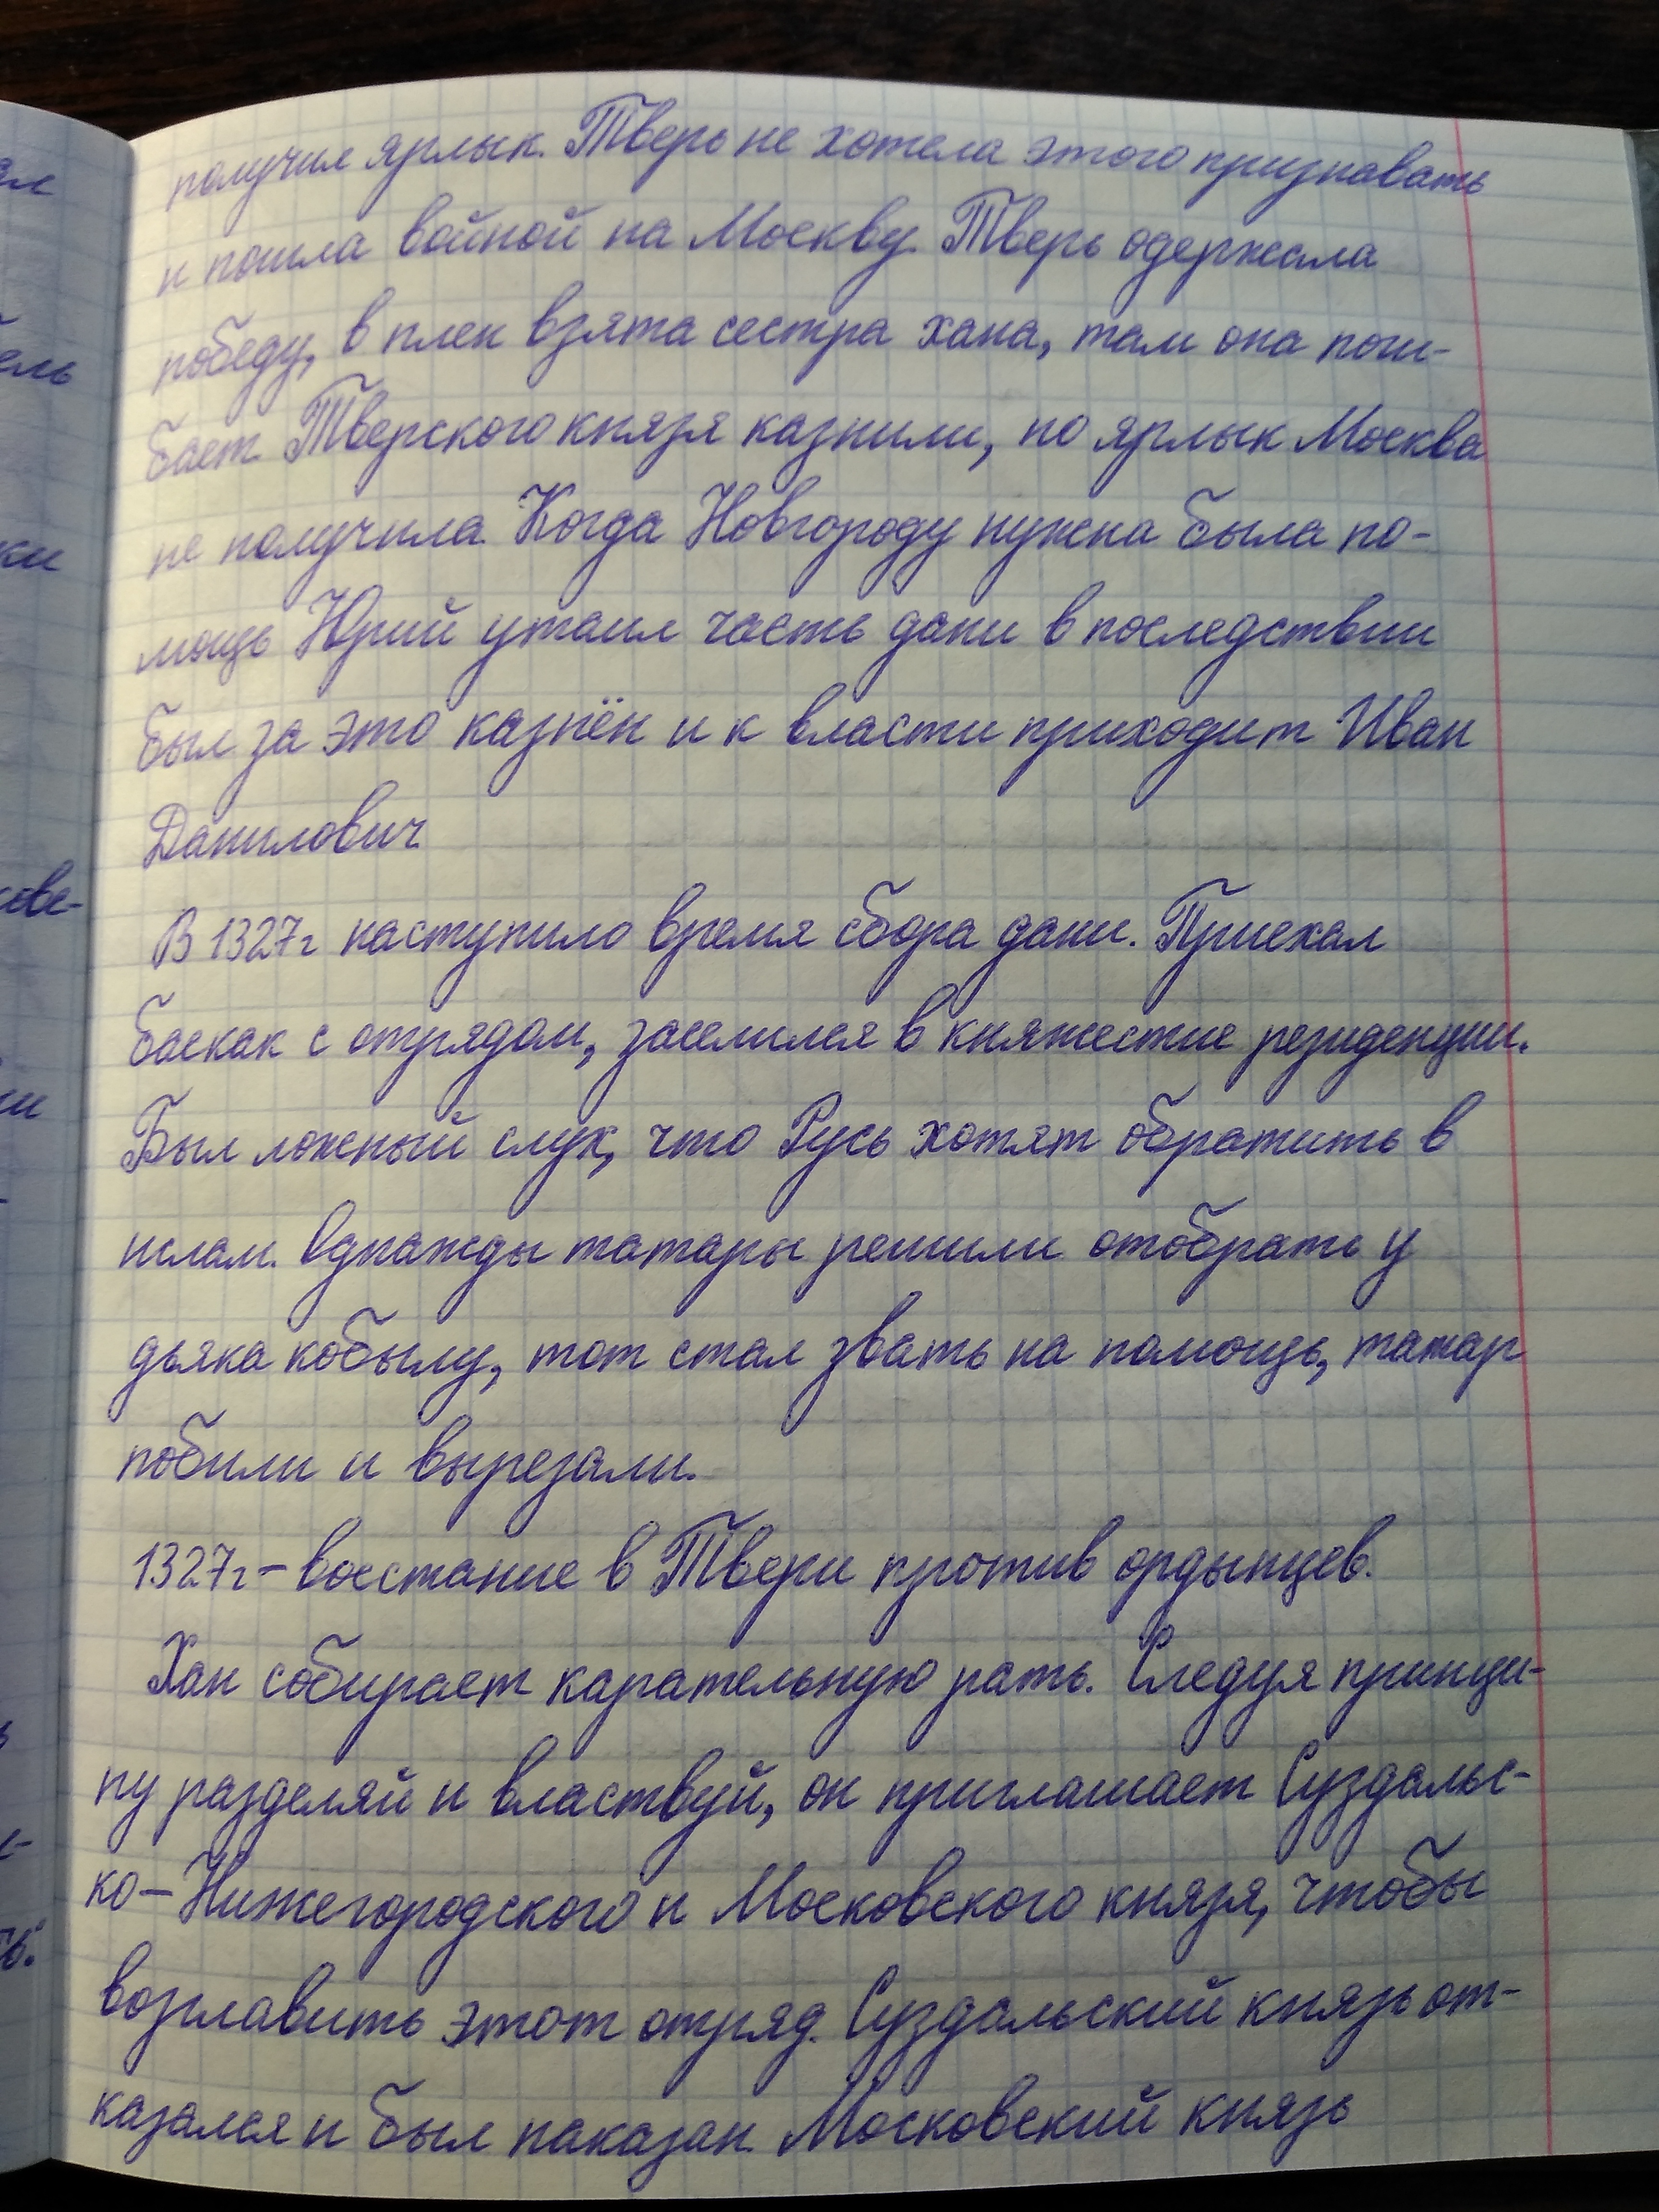 получил ярлык. Тверь не хотела этого признавать
и пошла войной на Москву. Тверь одержала
победу, в плен взята сестра хана, там она поги-
бает. Тверского князя казнили, но ярлык Москва
не получила. Когда Новгороду нужна была по-
мощь Юрий утаил часть дани в последствии
был за это казнён и к власти приходит Иван
Данилович.
В 1327г наступило время сбора дани. Приехал
баскак с отрядом, заселился в княжестие резиденции.
Был ложный слух, что Русь хотят обратить в
ислам. Однажды татары решили отобрать у
дьяка кобылу, тот стал звать на помощь, татар
побили и вырезали.
1327г – восстание в Твери против ордынцев.
Хан собирает карательную рать. Следуя принци-
пу разделяй и властвуй, он приглашает Суздальс-
ко-Нижегородского и Московского князя, чтобы
возглавить этот отряд. Суздальский князь от-
казался и был наказан. Московский князь